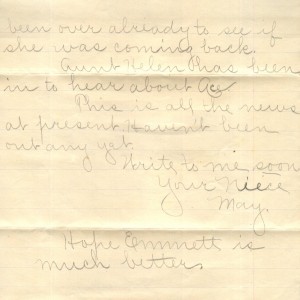 been over already to see if
she was coming back.
Aunt Helen P has been
in to hear about
This is all the news
at present. Havent been
out any yet.
Write to me soon
Your Niece
May.
Hope Emmett is
much better.